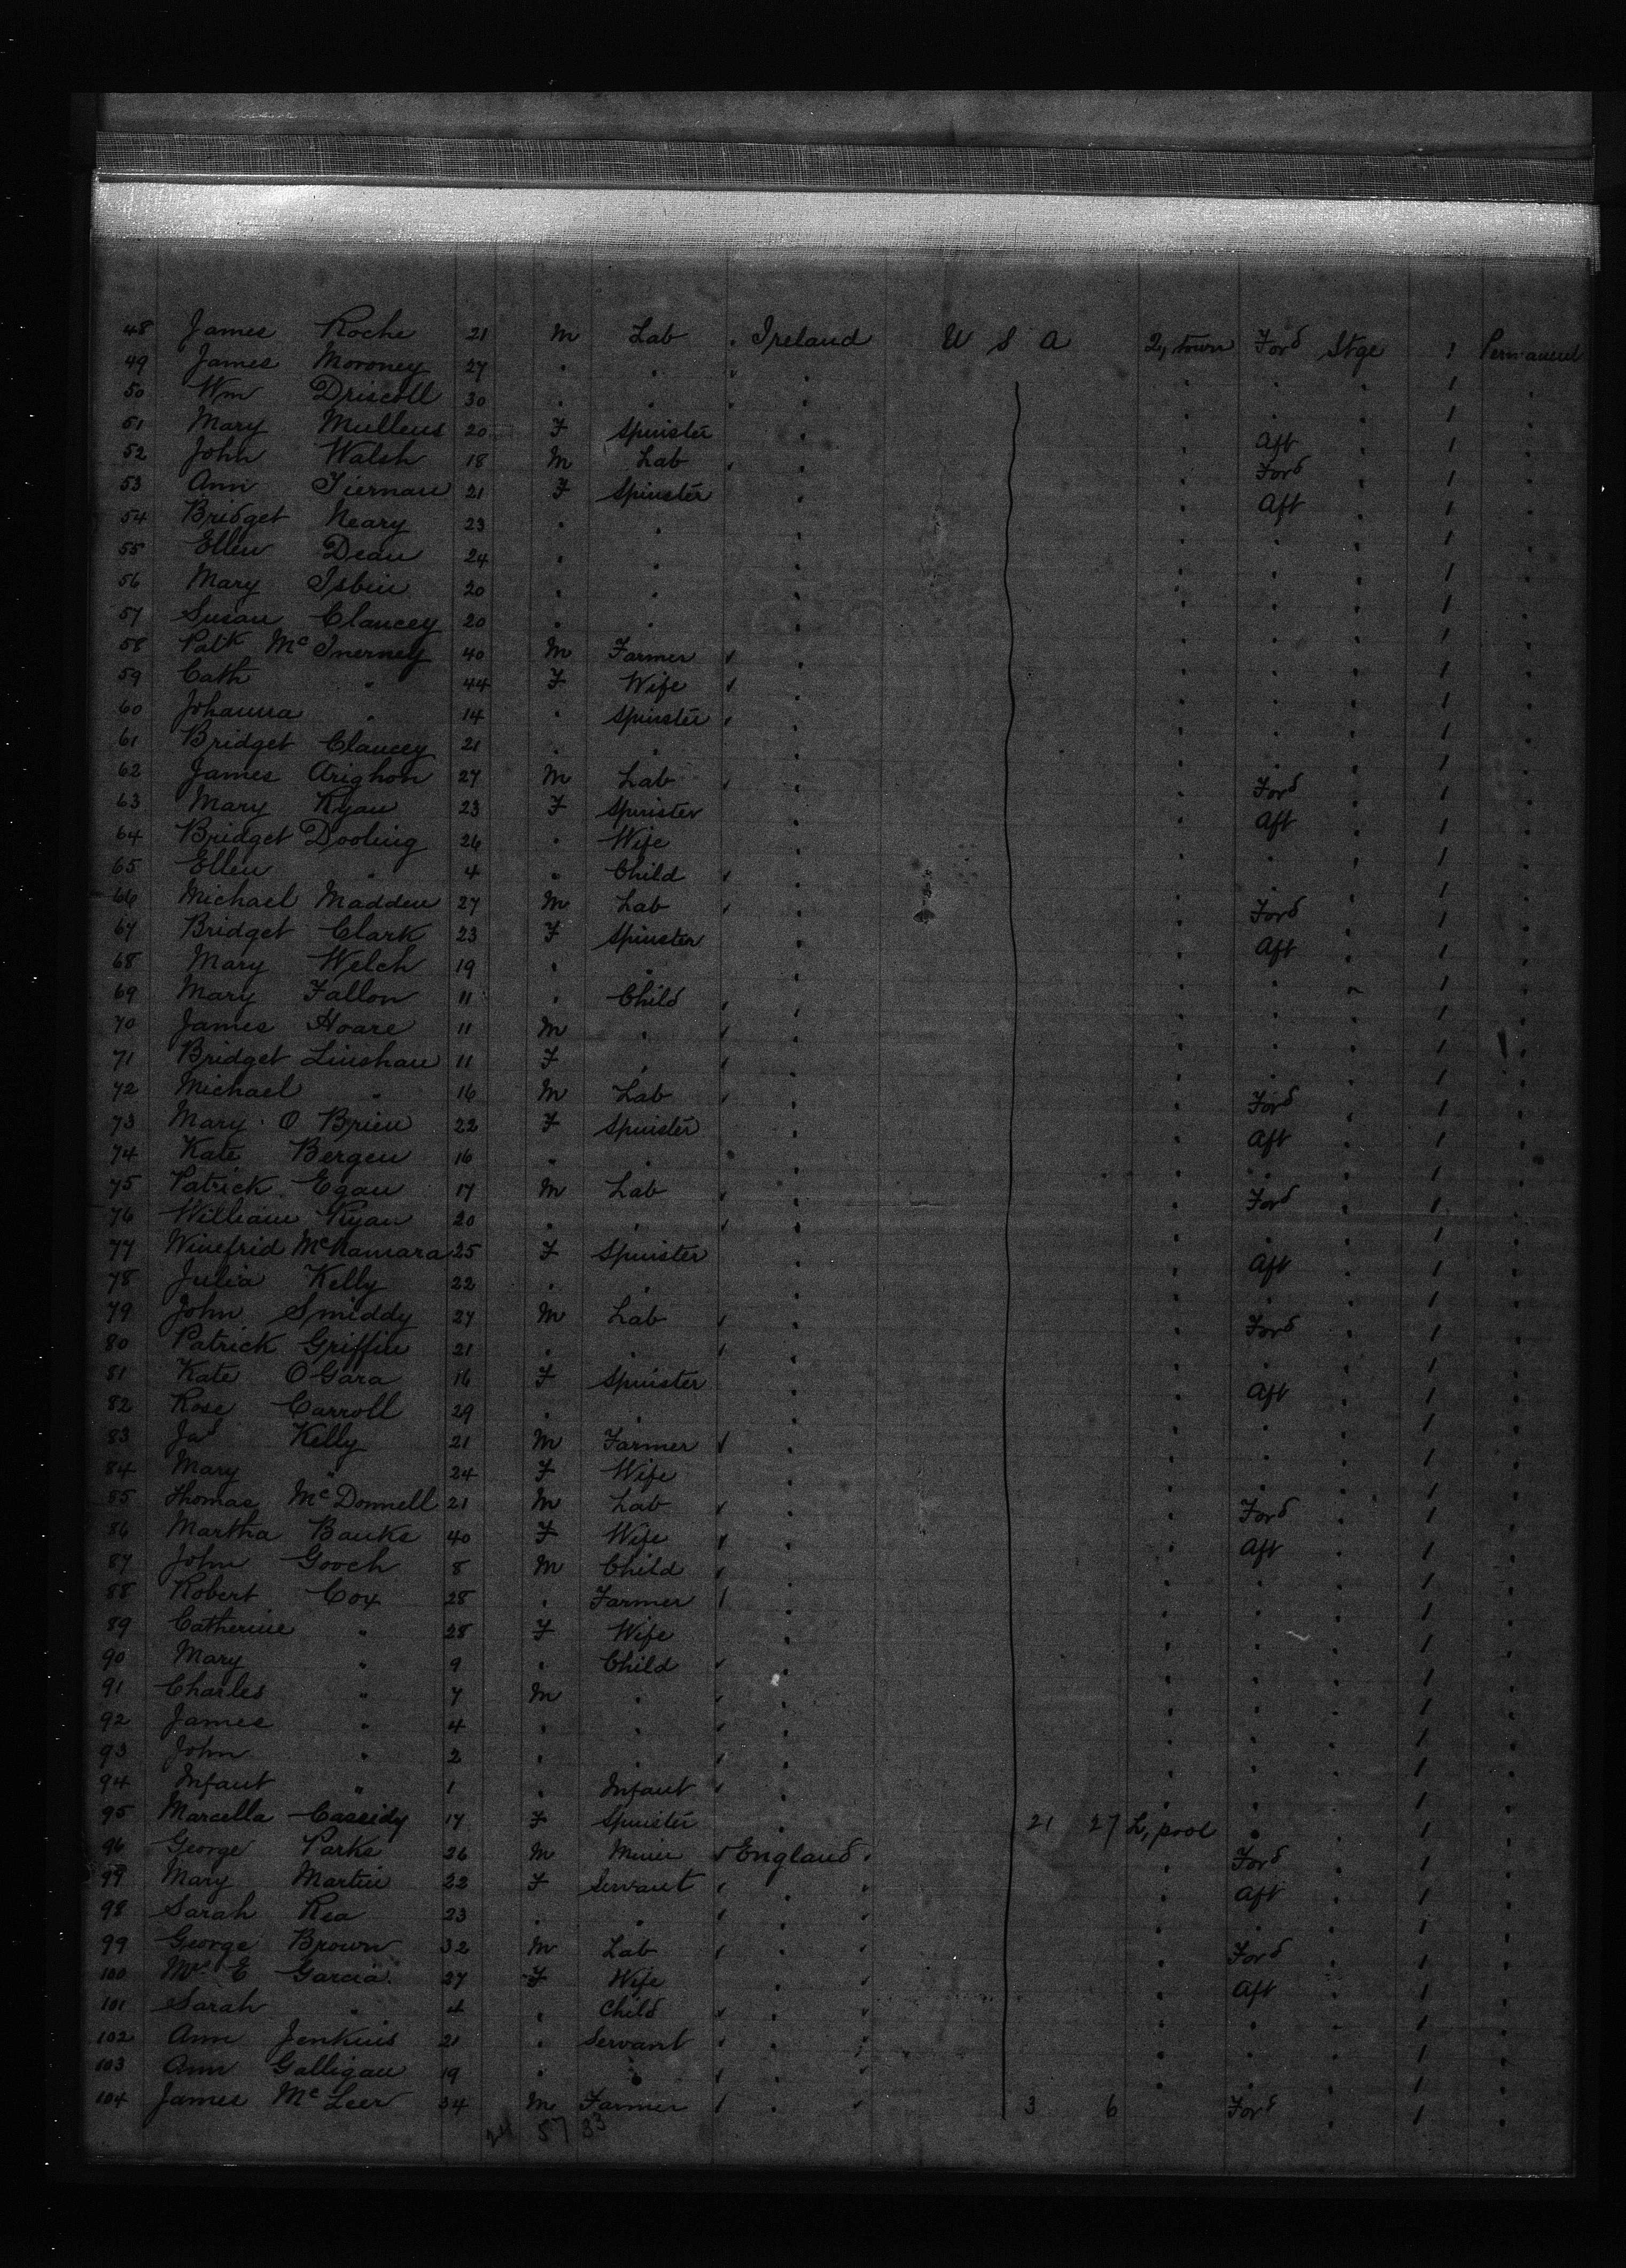 48 James Roche 21 M Lab . Ireland U S A Q, town Ford Stge 1 Permanent
49 James Moroney 27 " " " 1 "
50 Wm Driscoll 30 " " " " " " 1 "
51 Mary Mullens 20 F Spinster " " Aft " 1 "
52 John Walsh 18 M Lab " " Ford " 1 "
53 Ann Tiernan 21 F Spinster " " Aft " 1 "
54 Bridget Neary 23 " " " " " " 1 "
55 Ellen Dean 24 " " " " " " 1 "
56 Mary Isbin 20 " " " " " " 1 "
57 Susan Clancey 20 " " " " " " 1 "
58 Patk McInerney 40 M Farmer " " " " 1 "
59 Cath " 44 F Wife " " " " 1 "
60 Johanna " 14 " Spinster " " " " 1 "
61 Bridget Clancey 21 " " " " " " 1 "
62 James Arighon 27 M Lab " " Ford " 1 "
63 Mary Ryan 23 F Spinster " " Aft " 1 "
64 Bridget Dooling 26 " Wife " " " " 1 "
65 Ellen " 4 " Child " " " " 1 "
66 Michael Madden 27 M Lab " " Ford " 1 "
67 Bridget Clark 23 F Spinster " " Aft " 1 "
68 Mary Welch 19 " " " " " " 1 "
69 Mary Fallon 11 " Child " " " " 1 "
70 James Hoare 11 M " " " " " 1 "
71 Bridget Linshan 11 F " " " " " 1 "
72 Michael " 16 M Lab " " Ford " 1 "
73 Mary O Brien 22 F Spinster " " Aft " 1 "
74 Kate Bergen 16 " " " " " " 1 "
75 Patrick Egan 17 M Lab " " Ford " 1 "
76 William Ryan 20 " " " " " " 1 "
77 Winefrid McNamara 25 F Spinster " " Aft " 1 "
78 Julia Kelly 22 " " " " " " 1 "
79 John Smiddy 27 M Lab " " Ford " 1 "
80 Patrick Griffin 21 " " " " " " 1 "
81 Kate O Gara 16 F Spinster " " Aft " 1 "
82 Rose Carroll 29 " " " " " " 1 "
83 Jas Kelly 21 M Farmer " " " " 1 "
84 Mary " 24 F Wife " " " " 1 "
85 Thomas McDonnell 21 M Lab " " Ford " 1 "
86 Martha Banks 40 F Wife " " Aft " 1 "
87 John Gooch 8 M Child " " " " 1 "
88 Robert Cox 28 " Farmer " " " " 1 "
89 Catherine " 28 F Wife " " " " 1 "
90 Mary " 9 " Child " " " " 1 "
91 Charles " 7 M " " " " " 1 "
92 James " 4 " " " " " " 1 "
93 John " 2 " " " " " " 1 "
94 Infant " 1 " Infant " " " " 1 "
95 Marcella Cassidy 17 F Spinster " 21 27 L, pool " " 1 "
96 George Parks 26 M Miner England " Ford " 1 "
97 Mary Martin 22 F Servant " " Aft " 1 "
98 Sarah Rea 23 " " " " " " 1 "
99 George Brown 32 M Lab " " Ford " 1 "
100 Mrs E Garcia 27 F Wife " " Aft " 1 "
101 Sarah " 4 " Child " " " " 1 "
102 Ann Jenkins 21 " Servant " " " " 1 "
103 Ann Galligan 19 " " " " " " 1 "
104 James McLeer 34 M Farmer " 3 6 Ford " 1 "
24 57 33